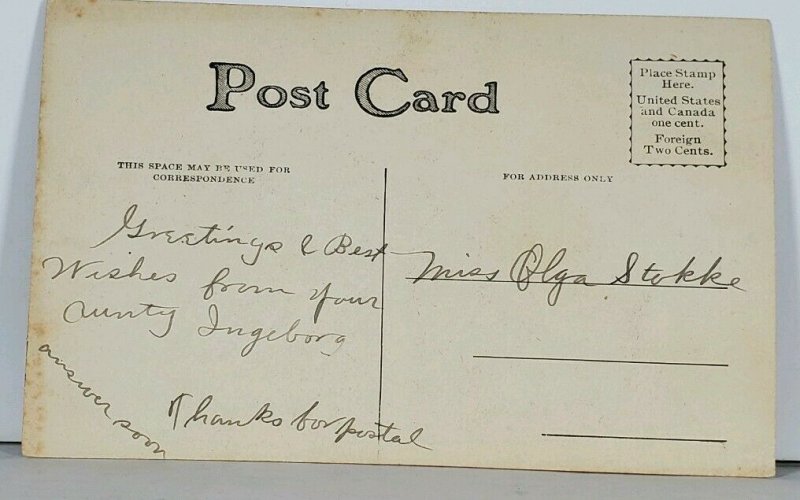 Post Card
Place Stamp
Here.
United States
and Canada
one cent.
Foreign
Two Cents.
THIS SPACE MAY BE USED FOR
CORRESPONDENCE
FOR ADDRESS ONLY
Greetings & Best
Wishes from your
Aunty Ingeborg
answer soon
Thanks for postal
Miss Olga Stokke